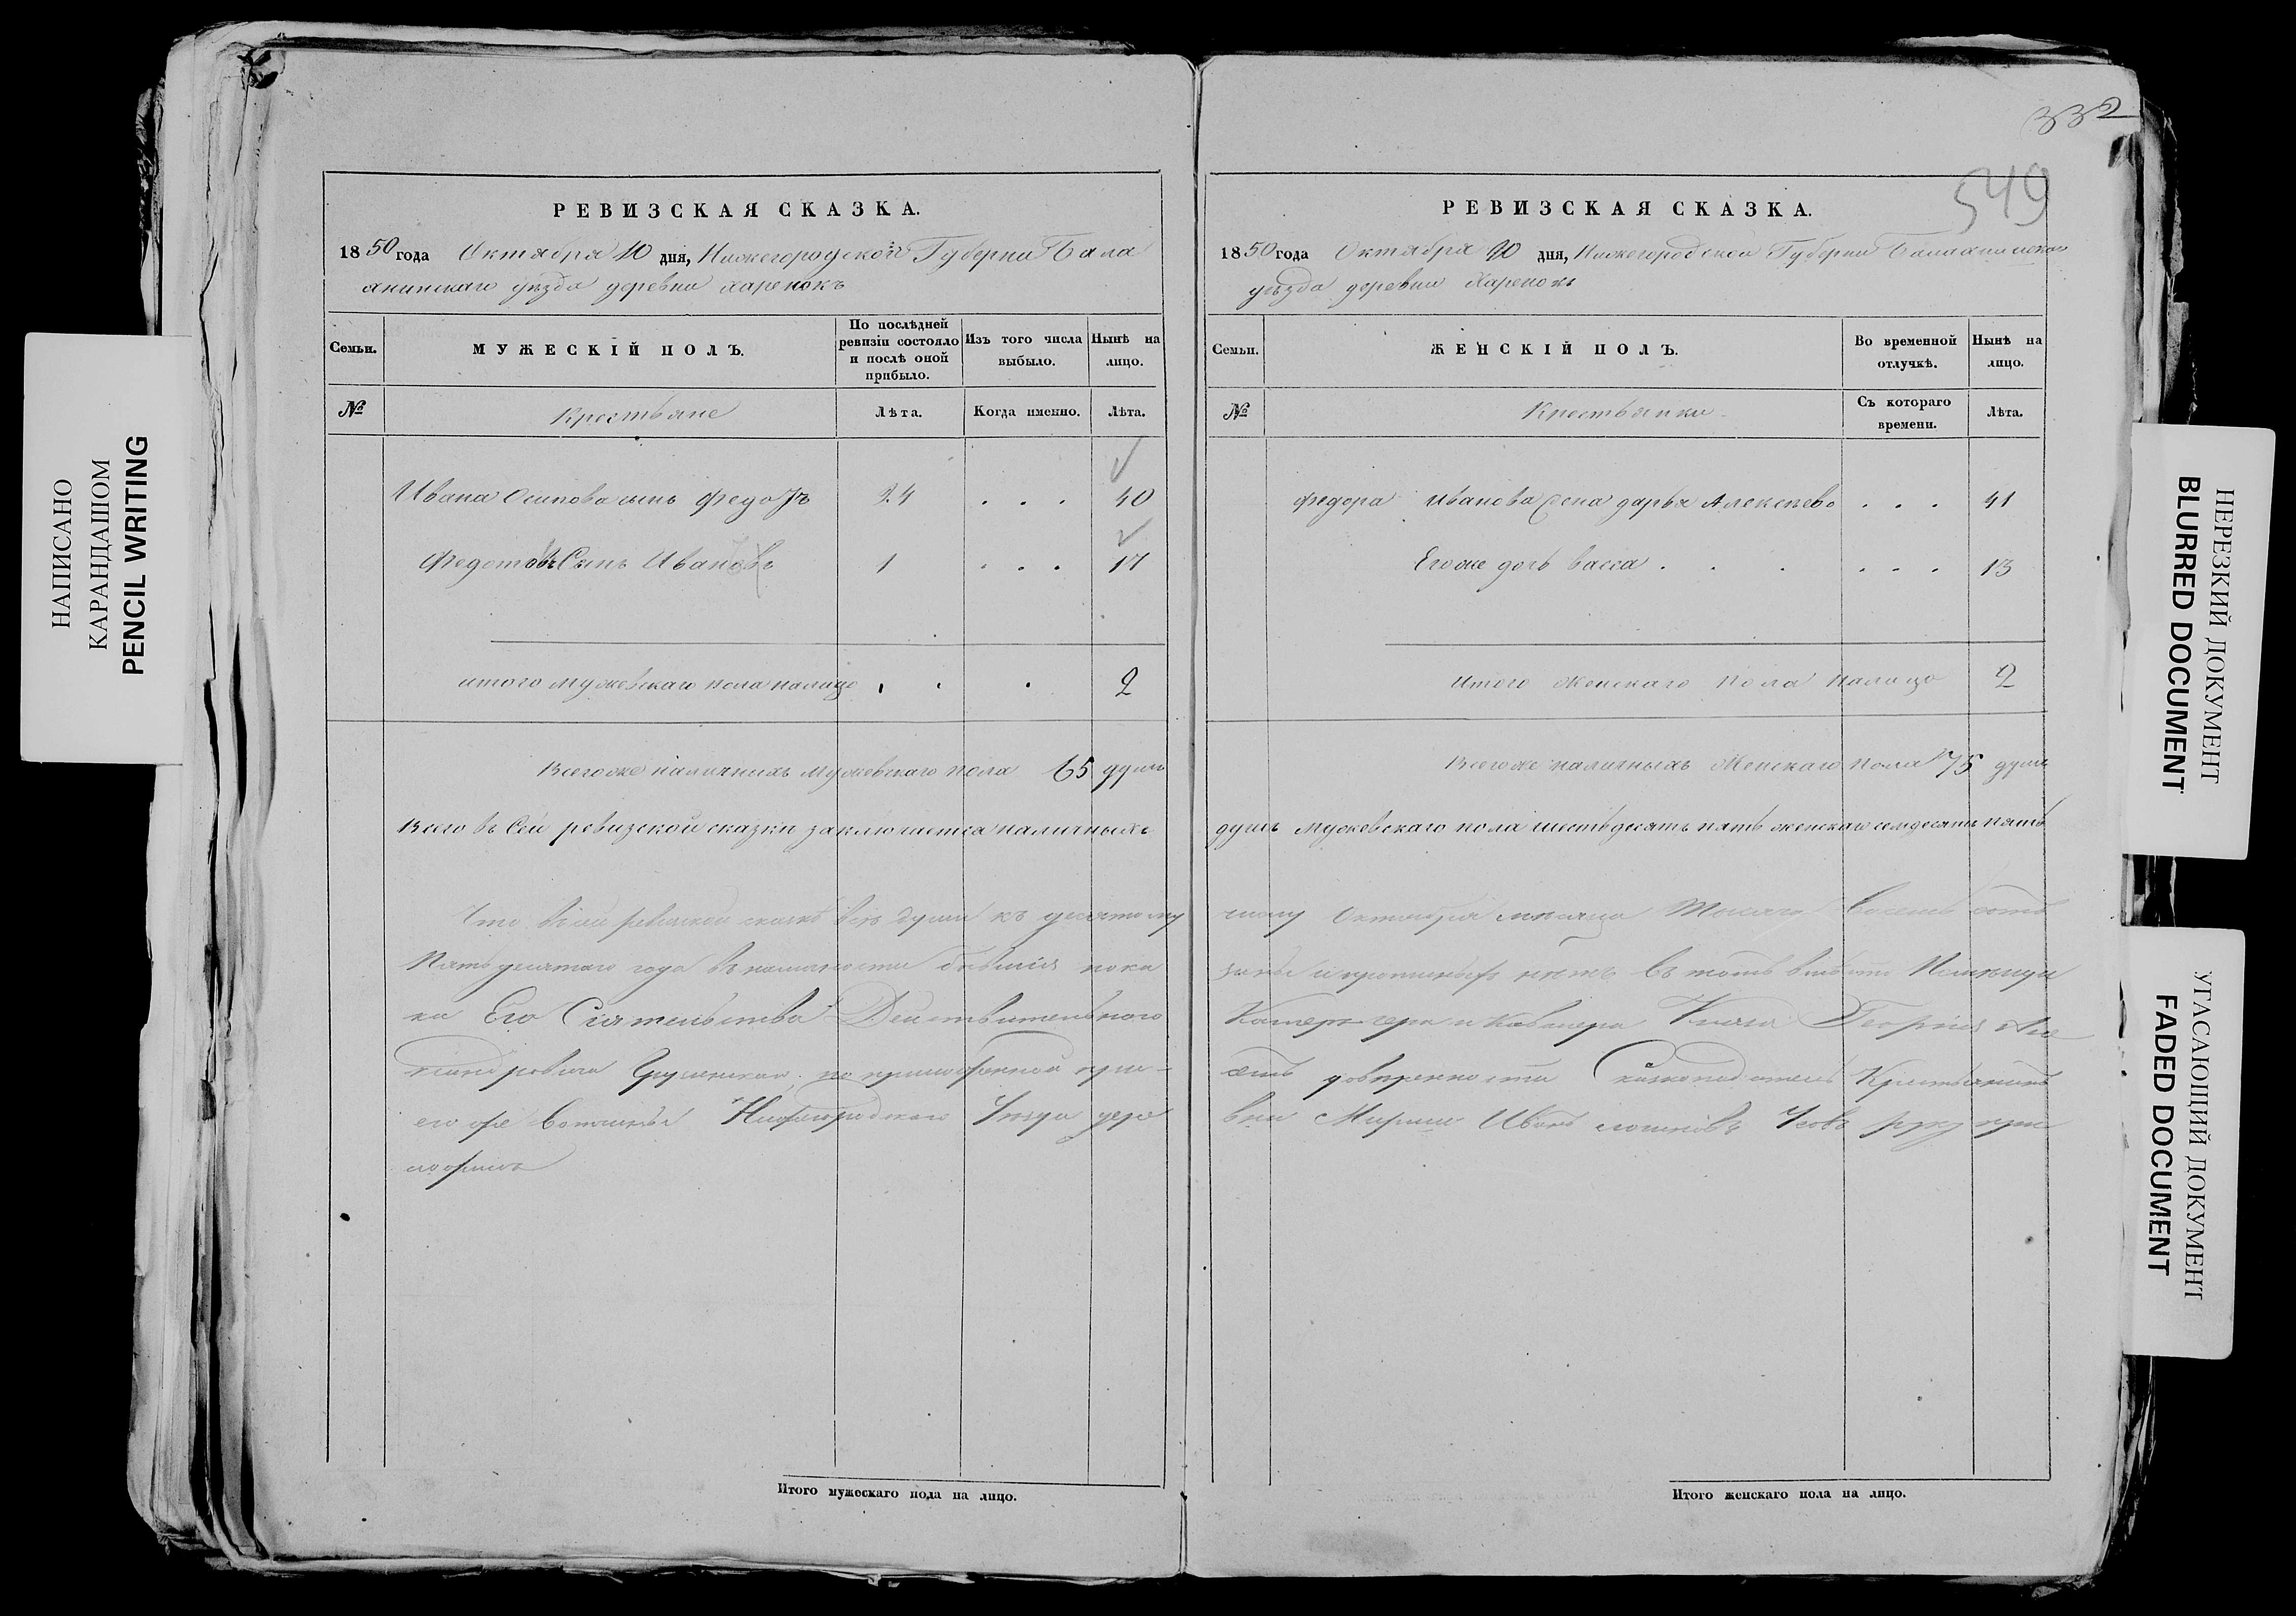 332
549
РЕВИЗСКАЯ СКАЗКА.
1850 года Октября 10 дня, Нижегородской Губерни Бала
хнинскаго уѣзда деревни Харенокъ
Семьи.
МУЖЕСКІЙ ПОЛЪ.
По послѣдней ревизіи состояло и послѣ оной прибыло.
Изъ того числа выбыло.
Нынѣ на лицо.
№
Крестьяне
Лѣта.
Когда именно.
Лѣта.
Ивана Осипова сынъ 24 . . . 40
Федотовъ Сынъ Иванъ 1 . . . 17
итого мужевскаго пола налицо . . . 2
Всегоже наличнихъ мужевскаго пола 65 душъ
Всего въ Сей ревизской сказки заключается наличныхъ
Что въ сей ревизской сказкѣ всѣ души къ десятому
Пятьдесятаго года въ наличности бывшия пока
ка Его Сиятельства Действительного
его же Вотчины Нижегородскаго Уезда дере
ложилъ
Итого мужескаго пола на лицо.
РЕВИЗСКАЯ СКАЗКА.
1850 года Октября 10 дня, Нижегородской Губерни
уѣзда деревни Харенокъ
Семьи.
ЖЕНСКІЙ ПОЛЪ.
Во временной отлучкѣ.
Нынѣ на лицо.
№
Крестьянки
Съ котораго времени.
Лѣта.
Федора Иванова жена дарья Алексѣево . . . 41
Егоже дочь васса . . . . . . 13
Итого женскаго Пола Налицо 2
Всегоже наличныхъ Женскаго пола 75 душъ
душъ Мужевскаго пола шестьдесятъ пять женскаго семдесятъ пять
Октября месяца восемь сотъ
заны и пропиныхъ нѣтъ въ томъ
Камергера и Кавалера Князя Георгия Але
доверенности Крестьянинъ
вни Иванъ руку при
Итого женскаго пола на лицо.
НАПИСАНО
КАРАНДАШОМ
PENCIL WRITING
НЕРЕЗКИЙ ДОКУМЕНТ
BLURRED DOCUMENT
УГАСАЮЩИЙ ДОКУМЕНТ
FADED DOCUMENT